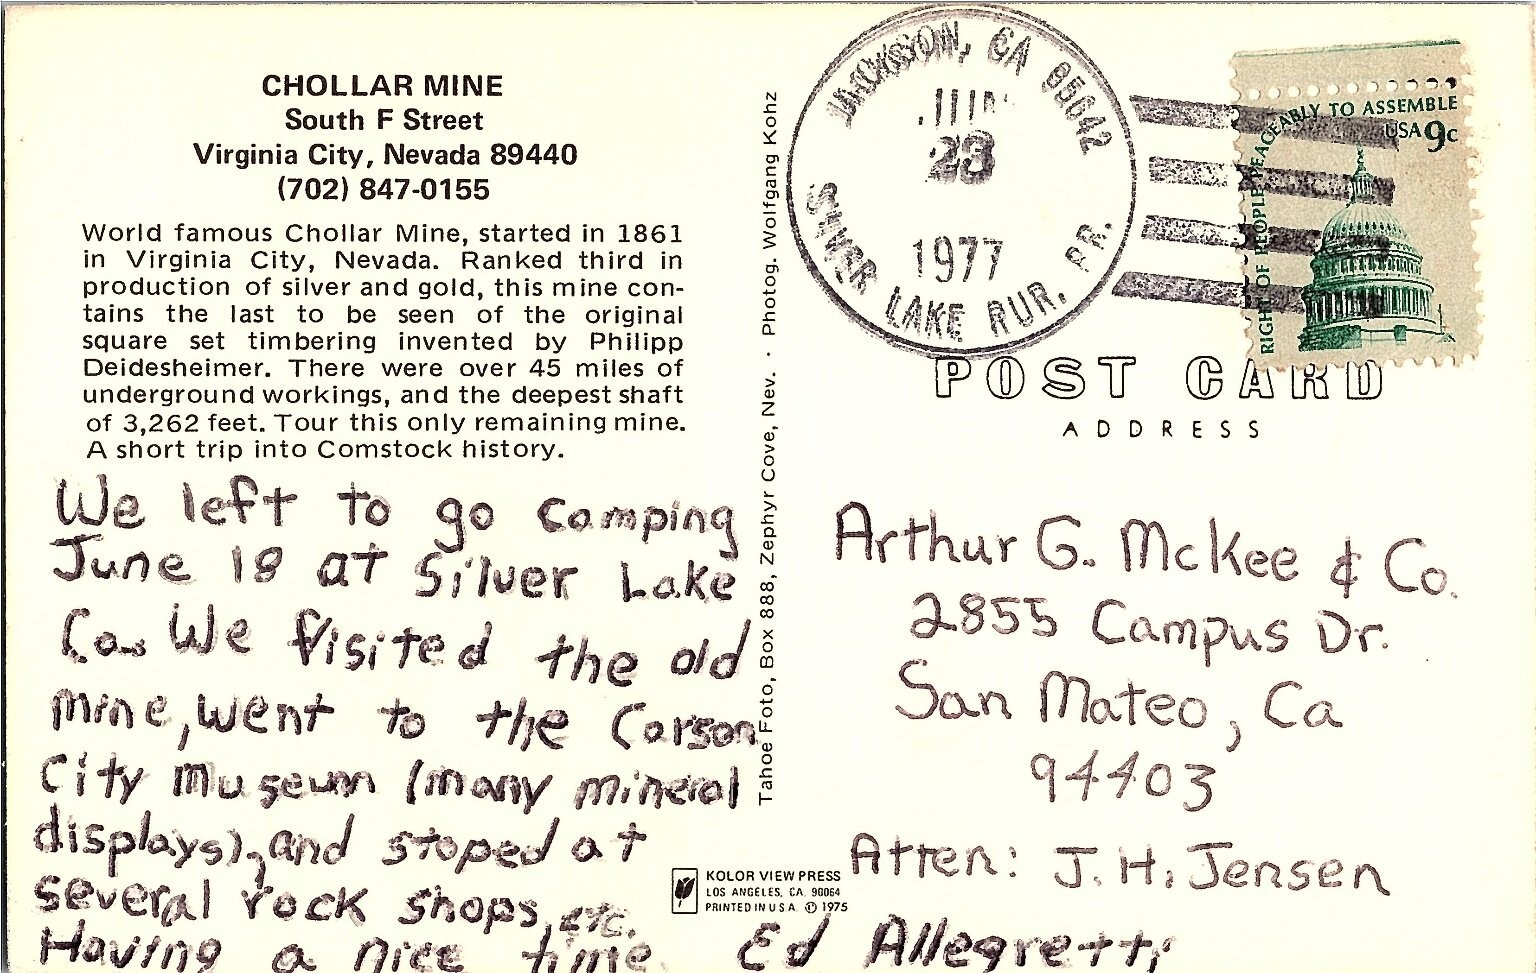 CHOLLAR MINE
South F Street
Virginia City, Nevada 89440
(702) 847-0155
World famous Chollar Mine, started in 1861
in Virginia City, Nevada. Ranked third in
production of silver and gold, this mine con-
tains the last to be seen of the original
square set timbering invented by Philipp
Deidesheimer. There were over 45 miles of
underground workings, and the deepest shaft
of 3,262 feet. Tour this only remaining mine.
A short trip into Comstock history.
We left to go camping
June 18 at Silver Lake
Ca. We Visited the old
mine, went to the Carson
City Museum (many mineral
displays), and stoped at
several rock shops, etc.
Having a nice time.
Ed Allegretti
Tahoe Foto, Box 888, Zephyr Cove, Nev. · Photog. Wolfgang Kohz
KOLOR VIEW PRESS
LOS ANGELES, CA. 90064
PRINTED IN U.S.A. © 1975
JACKSON, CA 95642
JUN
23
1977
SILVER LAKE RUR. BR.
RIGHT OF PEOPLE PEACEABLY TO ASSEMBLE
USA 9c
POST CARD
ADDRESS
Arthur G. McKee & Co.
2855 Campus Dr.
San Mateo, Ca
94403
Atten: J. H. Jensen